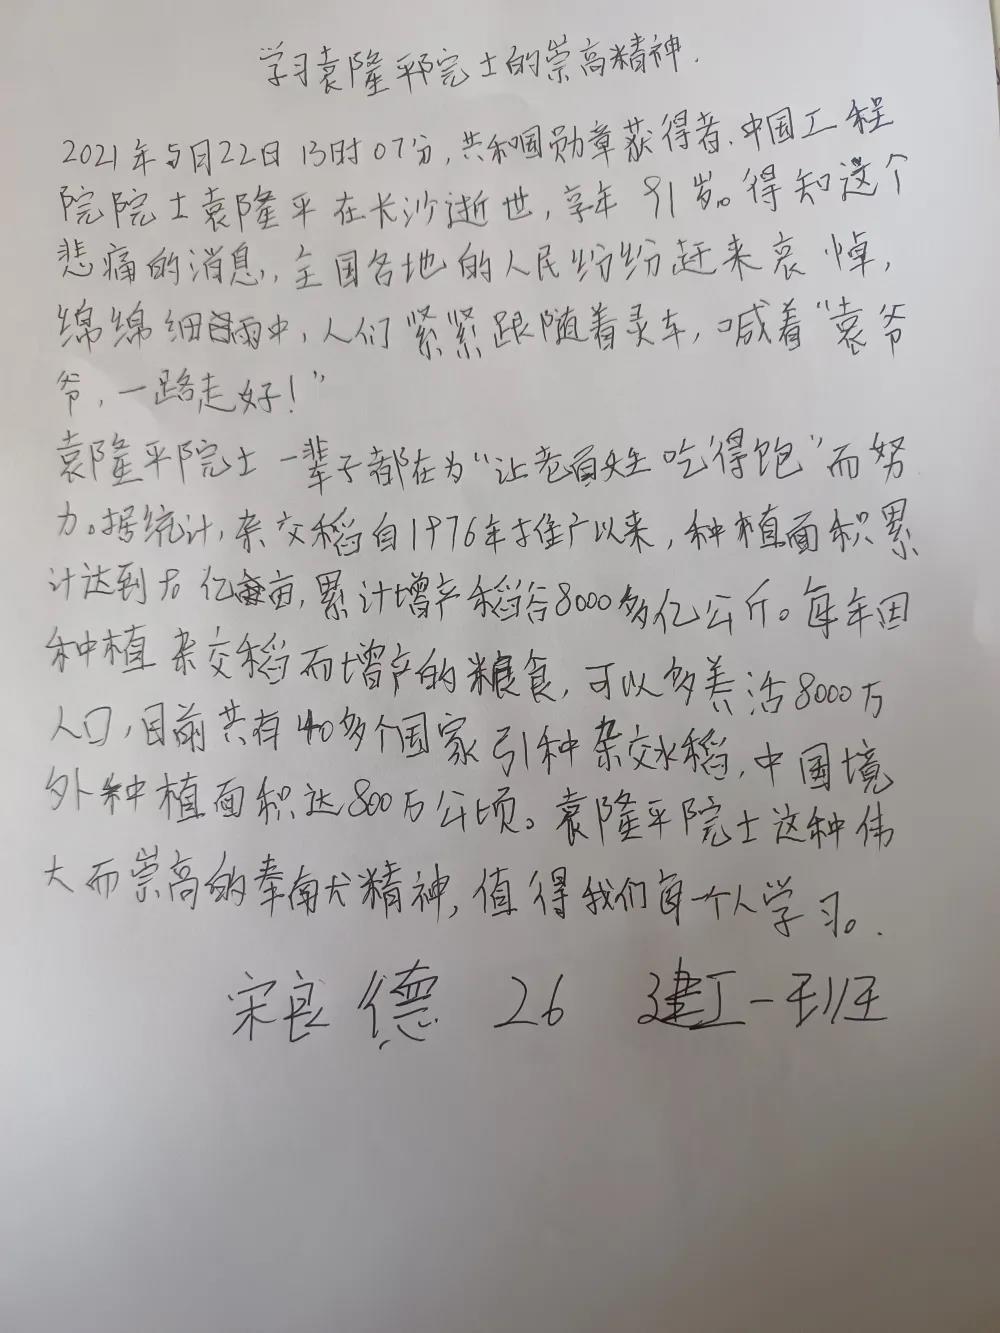 学习袁隆平院士的崇高精神.
2021年5月22日13时07分,共和国勋章获得者、中国工程
院院士袁隆平在长沙逝世,享年91岁。得知这个
悲痛的消息,全国各地的人民纷纷赶来哀悼,
绵绵细雨中,人们紧紧跟随着灵车,喊着“袁爷
爷,一路走好!”
袁隆平院士一辈子都在为“让老百姓吃得饱”而努
力。据统计,杂交稻自1976年推广以来,种植面积累
计达到 亿亩,累计增产稻谷8000多亿公斤。每年因
种植杂交稻而增产的粮食,可以多养活8000万
人口,目前共有40多个国家引种杂交水稻,中国境
外种植面积达800万公顷。袁隆平院士这种伟
大而崇高的奉献精神,值得我们每一个人学习。
宋良德 26 建工一班